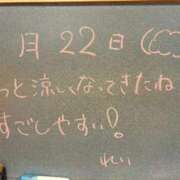 月22日(
っと涼しくなってきたね
すごしやすい!
れい